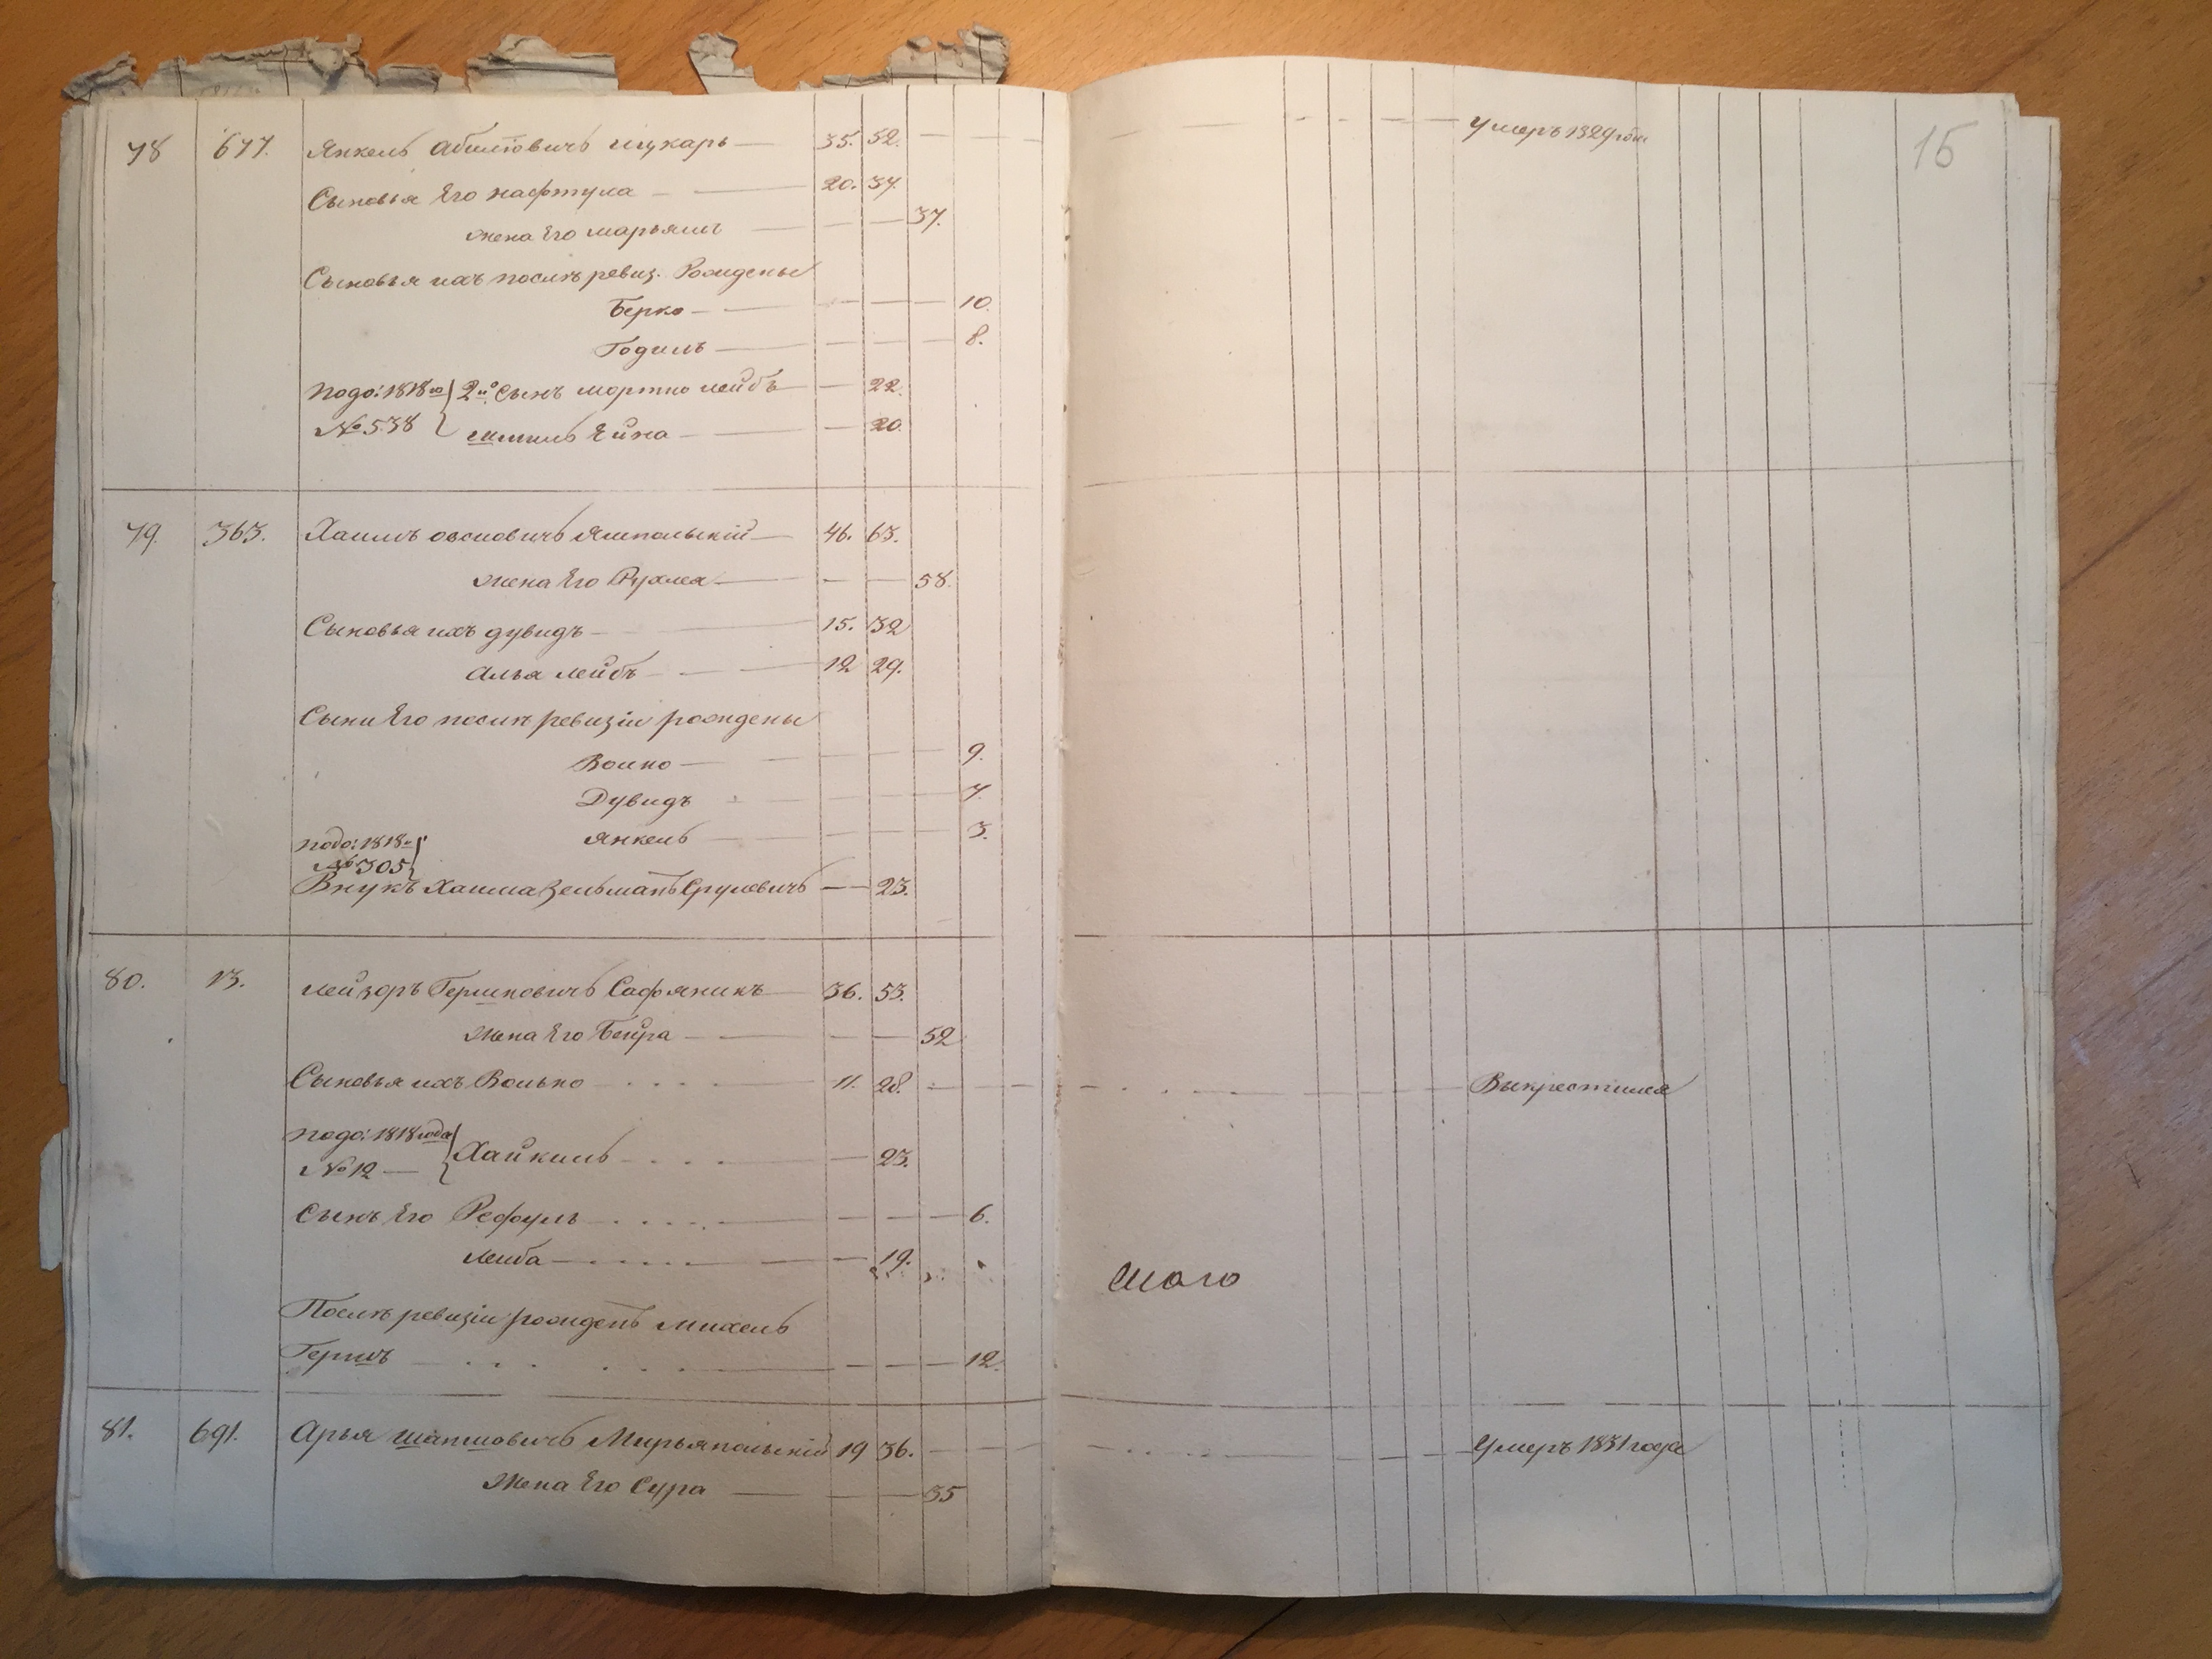 78 677. Янкель Абшлiовичъ Цукарь 35. 52. умеръ 1829 года 15
Сыновья Его нафтула 20. 37
жена Его Марьямъ 37.
Сыновья ихъ послѣ ревиз. Рождены
Берко 10.
Годиль 8.
подо: 1818го 2й Сынъ мортко лейбъ 22.
№ 538 20.
79. 363. Хаимъ Ямпольскiй 46. 63.
жена Его Рухлея 58.
Сыновья ихъ дувидъ 15. 32
Лейбъ 12 29.
Сыни Его послѣ ревизiи рождены
Волко 9.
Дувидъ 7.
Янкель 3.
подо: 1818
№ 305
Внукъ Хаима Зельманъ Срулевичъ 23.
80. 13. лейзоръ Гершковичъ Сафяникъ 36. 53.
жена Его Бейра 52
Сыновья ихъ Волько 11. 28. Выкрестился
подо: 1818 года Хайкиль 23.
№ 12
Сынъ Его Рефулъ 6.
Лейба 19.
Послѣ ревизiи рожденъ Михель
Гершъ 12.
81. 691. Арья Шапшовичъ Мирьяпольскiй 19 36. Умеръ 1831 года
Жена Его Сура 35